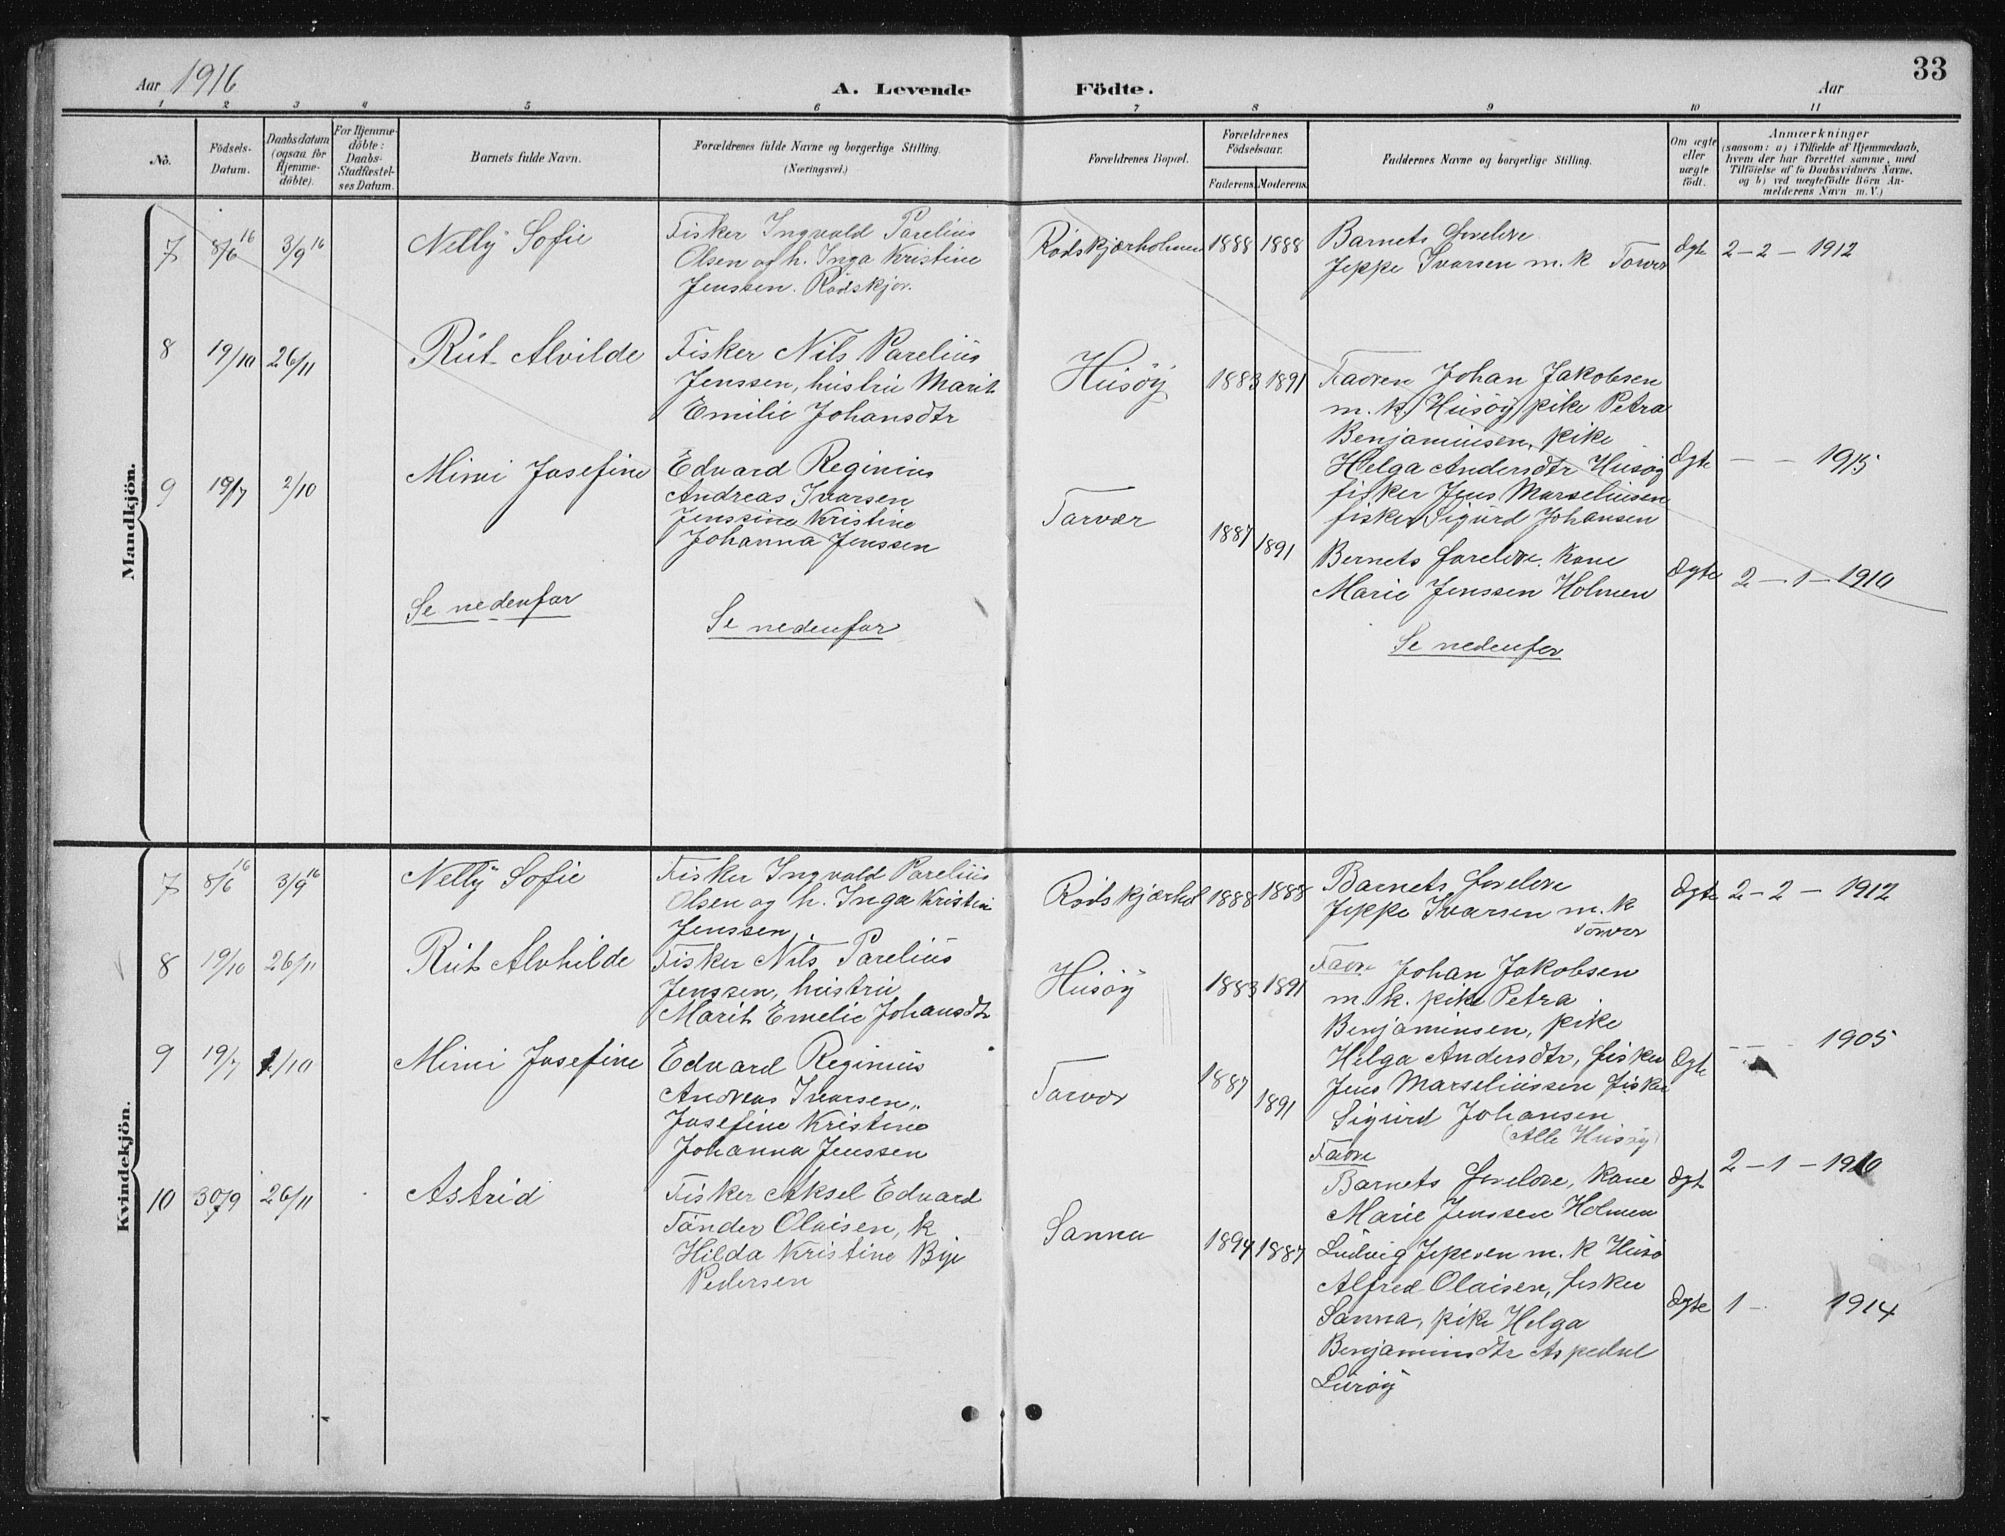 33
Aar 1916
A. Levende Födte.
Aar
1 2 3 4 5 6 7 8 9 10 11
No.
Födsels-Datum.
Daabsdatum (ogsaa for Hjemme-döbte).
For Hjemme-döbte: Daabs-Stadfæstel-ses Datum.
Barnets fulde Navn.
Forældrenes fulde Navne og borgerlige Stilling.
(Næringsvei.)
Forældrenes Bopæl.
Forældrenes Födselsaar.
Faderens. Moderens.
Faddernes Navne og borgerlige Stilling.
Om ægte eller uægte födt.
Anmærkninger
(saasom: a) i Tilfælde af Hjemmedaab,
hvem der har forrettet samme, med
Tilföielse af to Daabsvidners Navne,
og b) ved uægtefödte Börn An-
melderens Navn m. V.)
Mandkjön.
7 8/6 16 3/9 16 Nelly Sofie
Fisker Ingvald Parelius
Olsen og h. Inga Kristine
Jenssen. Rödskjær.
Rödskjærholmen 1888 1888
Barnets foreldre
Jeppe Ivarsen m. k Torvær
Ægte 2 - 2 - 1912
8 19/10 26/11 Rut Alvilde
Fisker Nils Parelius
Jenssen, hustru Marit
Emilie Johansdtr
Husöy 1883 1891
Fadren Johan Jakobsen
m. k. Husöy pike Petra
Benjaminsen, pike
Helga Andersdtr Husöy
fisker Jens Marseliussen
fisker Sigurd Johansen
Ægte - - 1915
9 19/7 2/10 Mimi Josefine
Edvard Reginius
Andreas Ivarsen
Jenssine Kristine
Johanna Jenssen
Torvær 1887 1891
Bernets foreldre. Kone
Marie Jenssen Holmen
Ægte 2 - 1 - 1910
Se nedenfor
Se nedenfor
Se nedenfor
Kvindekjön.
7 8/6 16 3/9 16 Nelly Sofie
Fisker Ingvald Parelius
Olsen og h. Inga Kristine
Jenssen
Rödskjærhol 1888 1888
Barnets foreldre
Jeppe Ivarsen m. k
Torvær
Ægte 2 - 2 - 1912
8 19/10 26/11 Rut Alvhilde
Fisker Nils Parelius
Jenssen, hustru
Marit Emelie Johansdtr
Husöy 1883 1891
Fadre Johan Jakobsen
m. k. pike Petra
Benjaminsen, pike
Helga Andersdtr, fisker
Jens Marseliussen fisker
Sigurd Johansen
(Alle Husöy)
Ægte - - 1905
9 19/7 1/10 Mimi Josefine
Edvard Reginius
Andreas Ivarsen,
Josefine Kristine
Johanna Jenssen
Torvær 1887 1891
Fadre
Barnets foreldre, kone
Marie Jenssen Holmen
Ægt 2 - 1 - 1910
10 30/9 26/11 Astrid
Fisker Aksel Edvard
Tönder Olaisen, k
Hilda Kristine Bye
Pedersen
Sanna 1894 1887
Ludvig Jepesen m. k Husö
Alfred Olaisen, fisker
Sanna, pike Helga
Benjaminsdtr Aspedal
Luröy
Ægte 1 - 1914